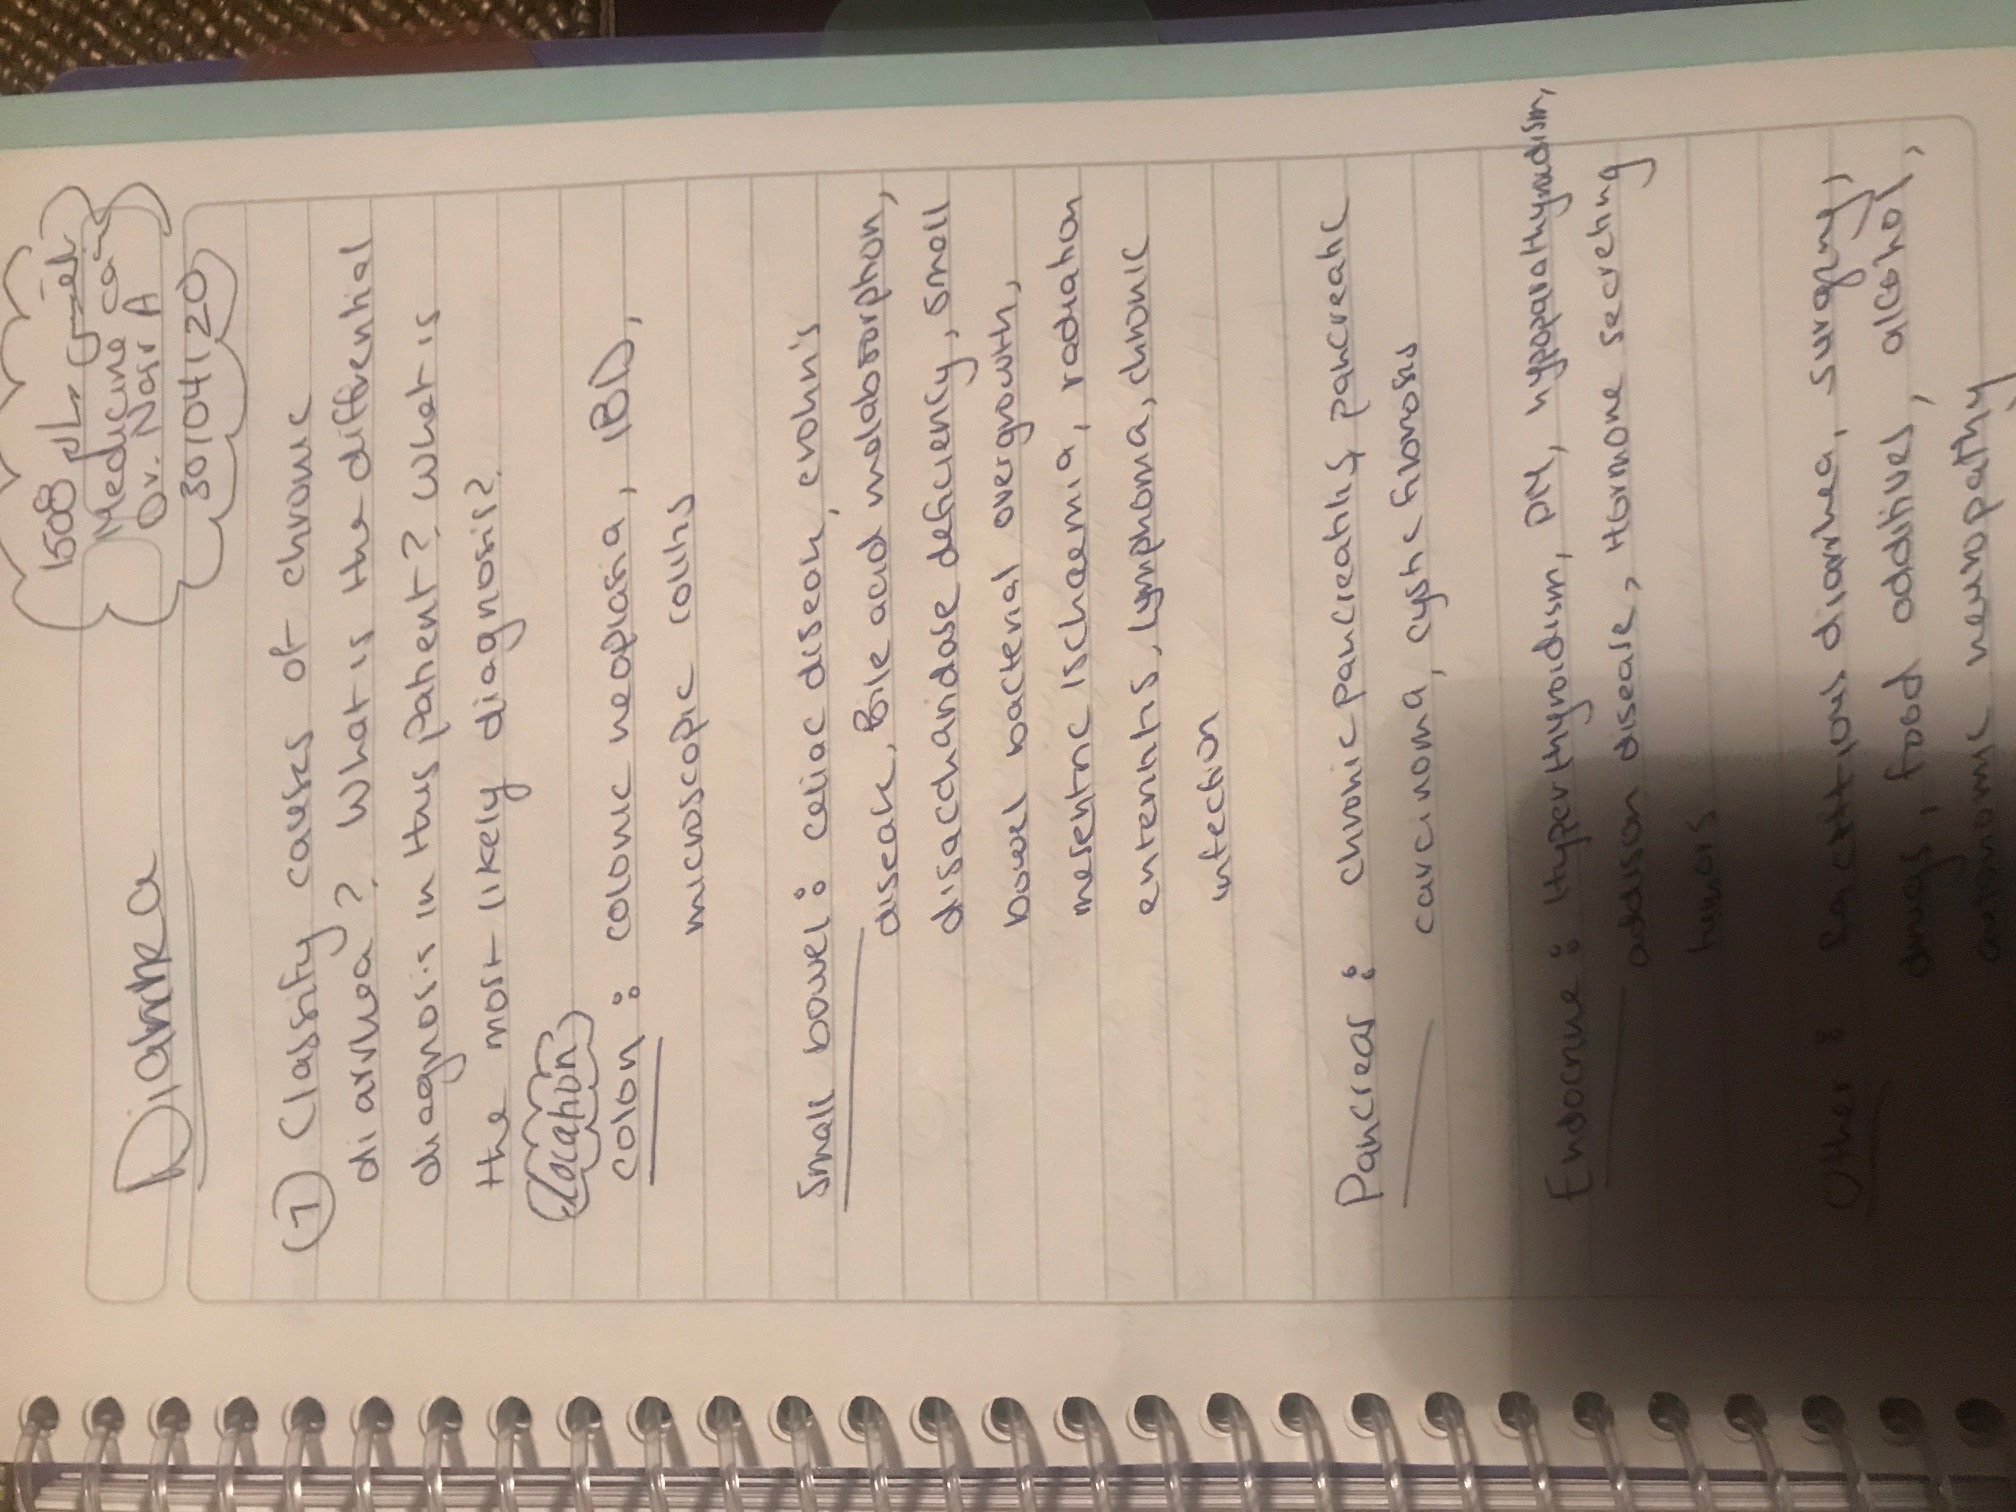 Medicine
Dr. Nasr A
30/04/20
Diarrhea
① Classify causes of chronic
diarrhea? What is the diffrential
diagnosis in this patient? What is
the most likely diagnosis?
Location
Colon: colonic neoplasia, IBD,
microscopic colitis
Small bowel: celiac disease, crohn's
disease, Bile acid malabsorption,
disaccharidase deficiency, small
bowel bacterial overgrowth,
mesentric ischaemia, radiation
enteritis, lymphoma, chronic
infection
Pancreas: chronic pancreatitis, pancreatic
carcinoma, cystic fibrosis
Endocrine: Hyperthyroidism, DM, hypoparathyroidism,
addison disease, Hormone secreting
tumors
Other: Factitious diarrhea, surgery,
drugs, food additives, alcohol,
autonomic neuropathy